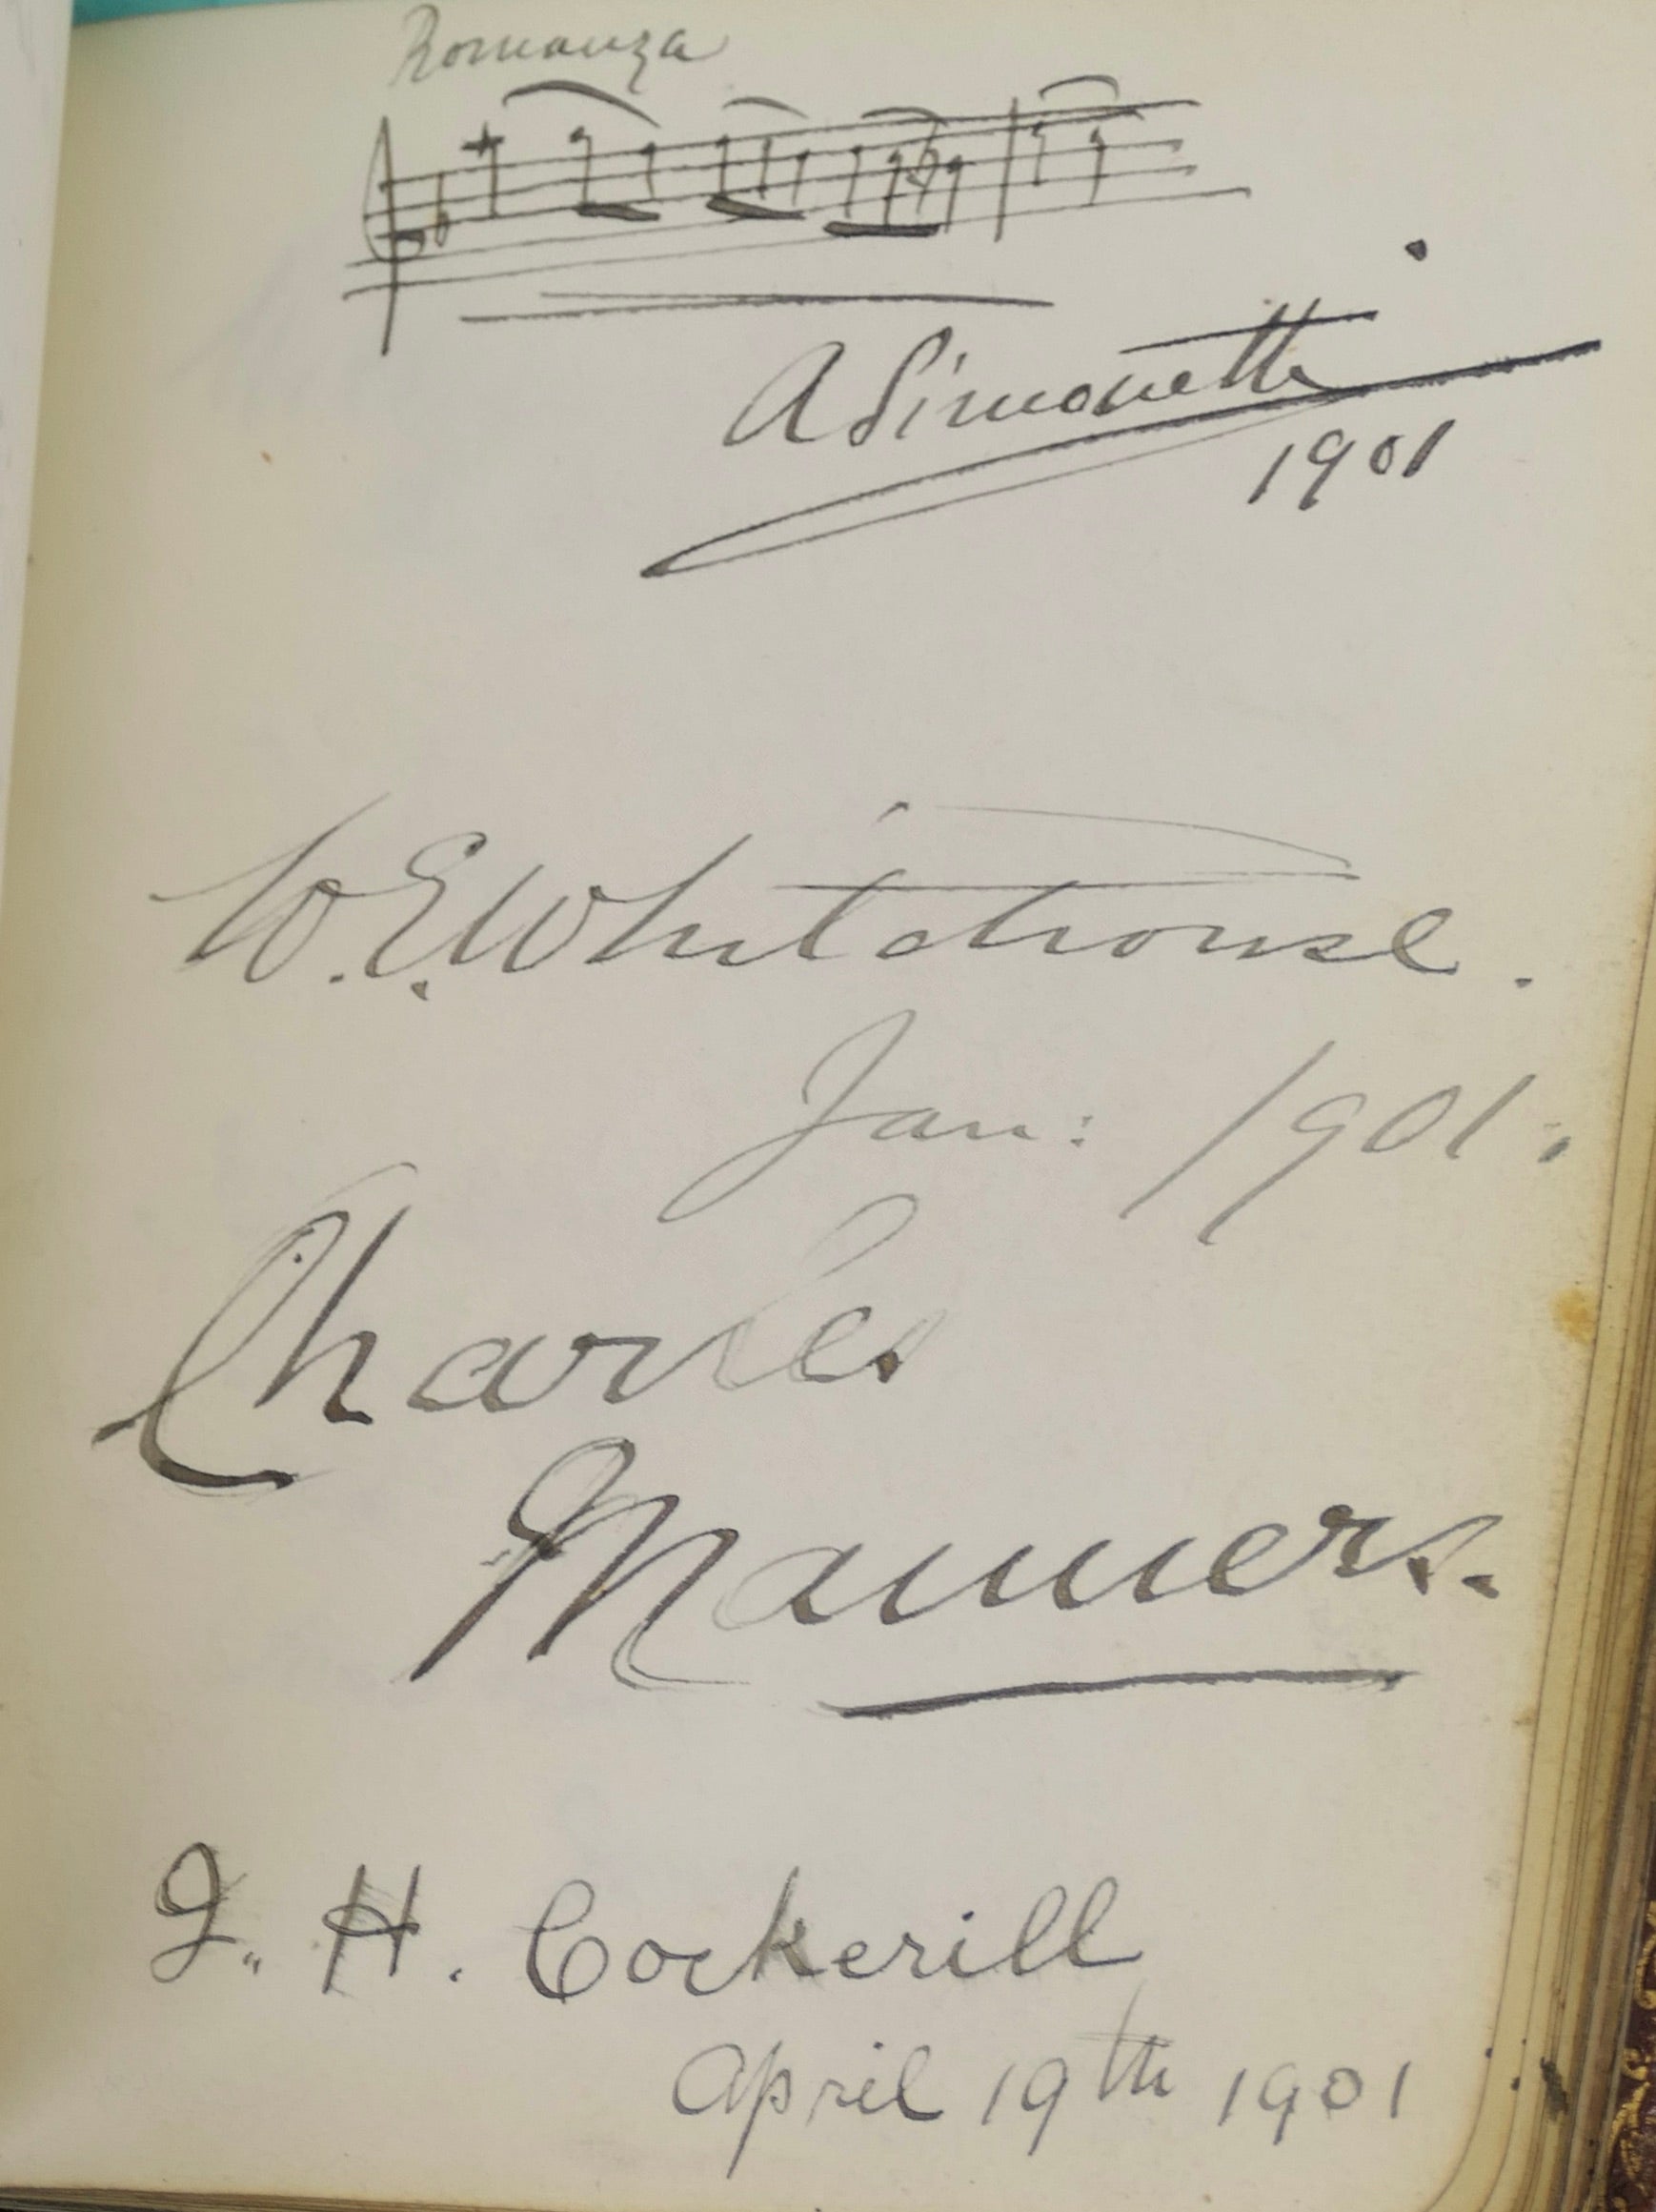 Romanza
A Simonetti
1901
W. E. Whitehouse.
Jan: 1901.
Charles
Manners.
J. H. Cockerill
April 19th 1901